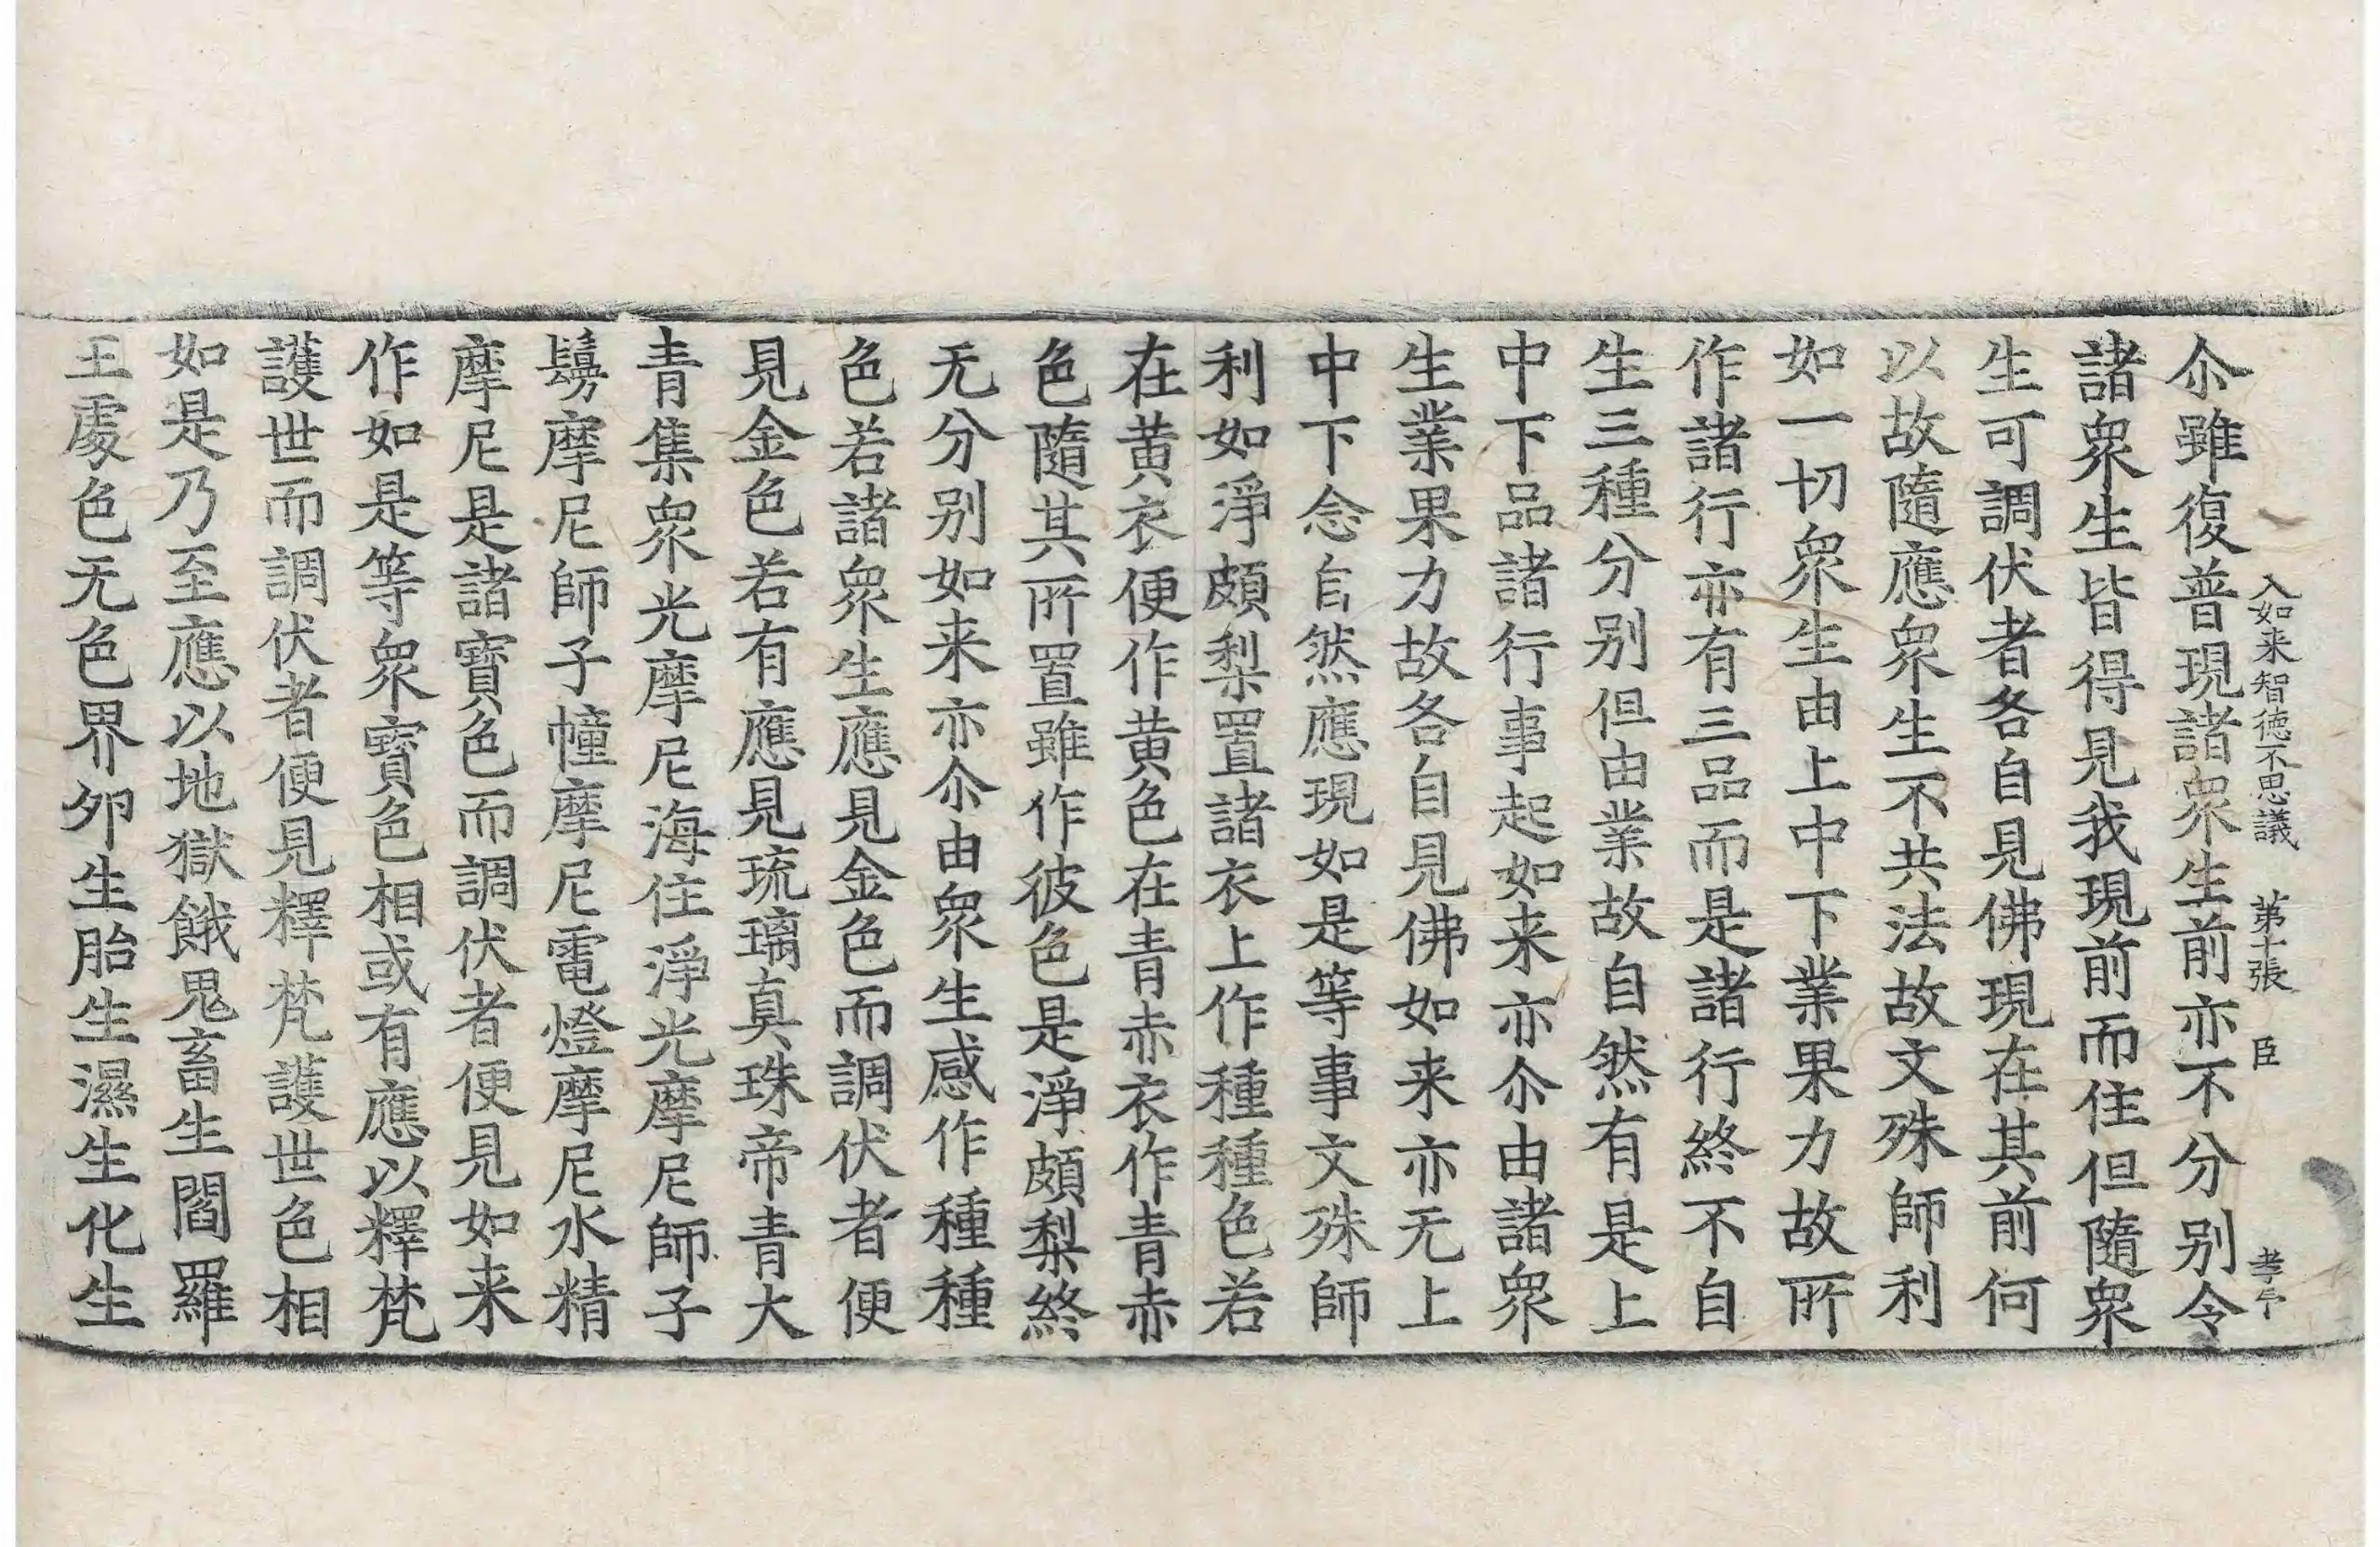 入如来智徳不思議　第十張　臣　孝亨
尒雖復普現諸衆生前亦不分别令
諸衆生皆得見我現前而住但隨衆
生可調伏者各自見佛現在其前何
以故隨應衆生不共法故文殊師利
如一切衆生由上中下業果力故所
作諸行亦有三品而是諸行終不自
生三種分别但由業故自然有是上
中下品諸行事起如来亦尒由諸衆
生業果力故各自見佛如来亦无上
中下念自然應現如是等事文殊師
利如淨頗梨置諸衣上作種種色若
在黄衣便作黄色在青赤衣作青赤
色隨其所置雖作彼色是淨頗梨終
无分别如来亦尒由衆生感作種種
色若諸衆生應見金色而調伏者便
見金色若有應見琉璃真珠帝青大
青集衆光摩尼海住淨光摩尼師子
鬘摩尼師子幢摩尼電燈摩尼水精
摩尼是諸寳色而調伏者便見如来
作如是等衆寳色相或有應以釋梵
護世而調伏者便見釋梵護世色相
如是乃至應以地獄餓鬼畜生閻羅
王處色无色界夘生胎生濕生化生